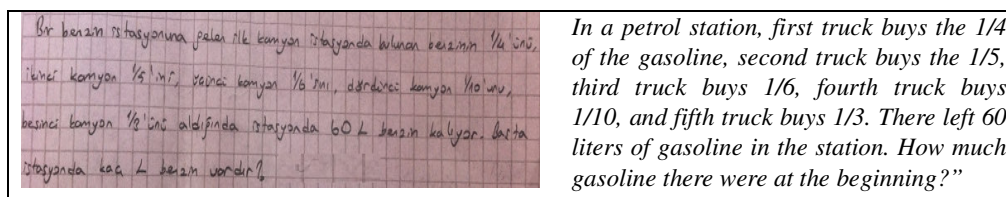 Bir benzin istasyonuna gelen ilk kamyon istasyonda bulunan benzinin 1/4'ünü,
ikinci kamyon 1/5'ini, üçüncü kamyon 1/6'sını, dördüncü kamyon 1/10'unu,
beşinci kamyon 1/3'ünü aldığında istasyonda 60 L benzin kalıyor. Başta
istasyonda kaç L benzin vardır?
In a petrol station, first truck buys the 1/4
of the gasoline, second truck buys the 1/5,
third truck buys 1/6, fourth truck buys
1/10, and fifth truck buys 1/3. There left 60
liters of gasoline in the station. How much
gasoline there were at the beginning?”